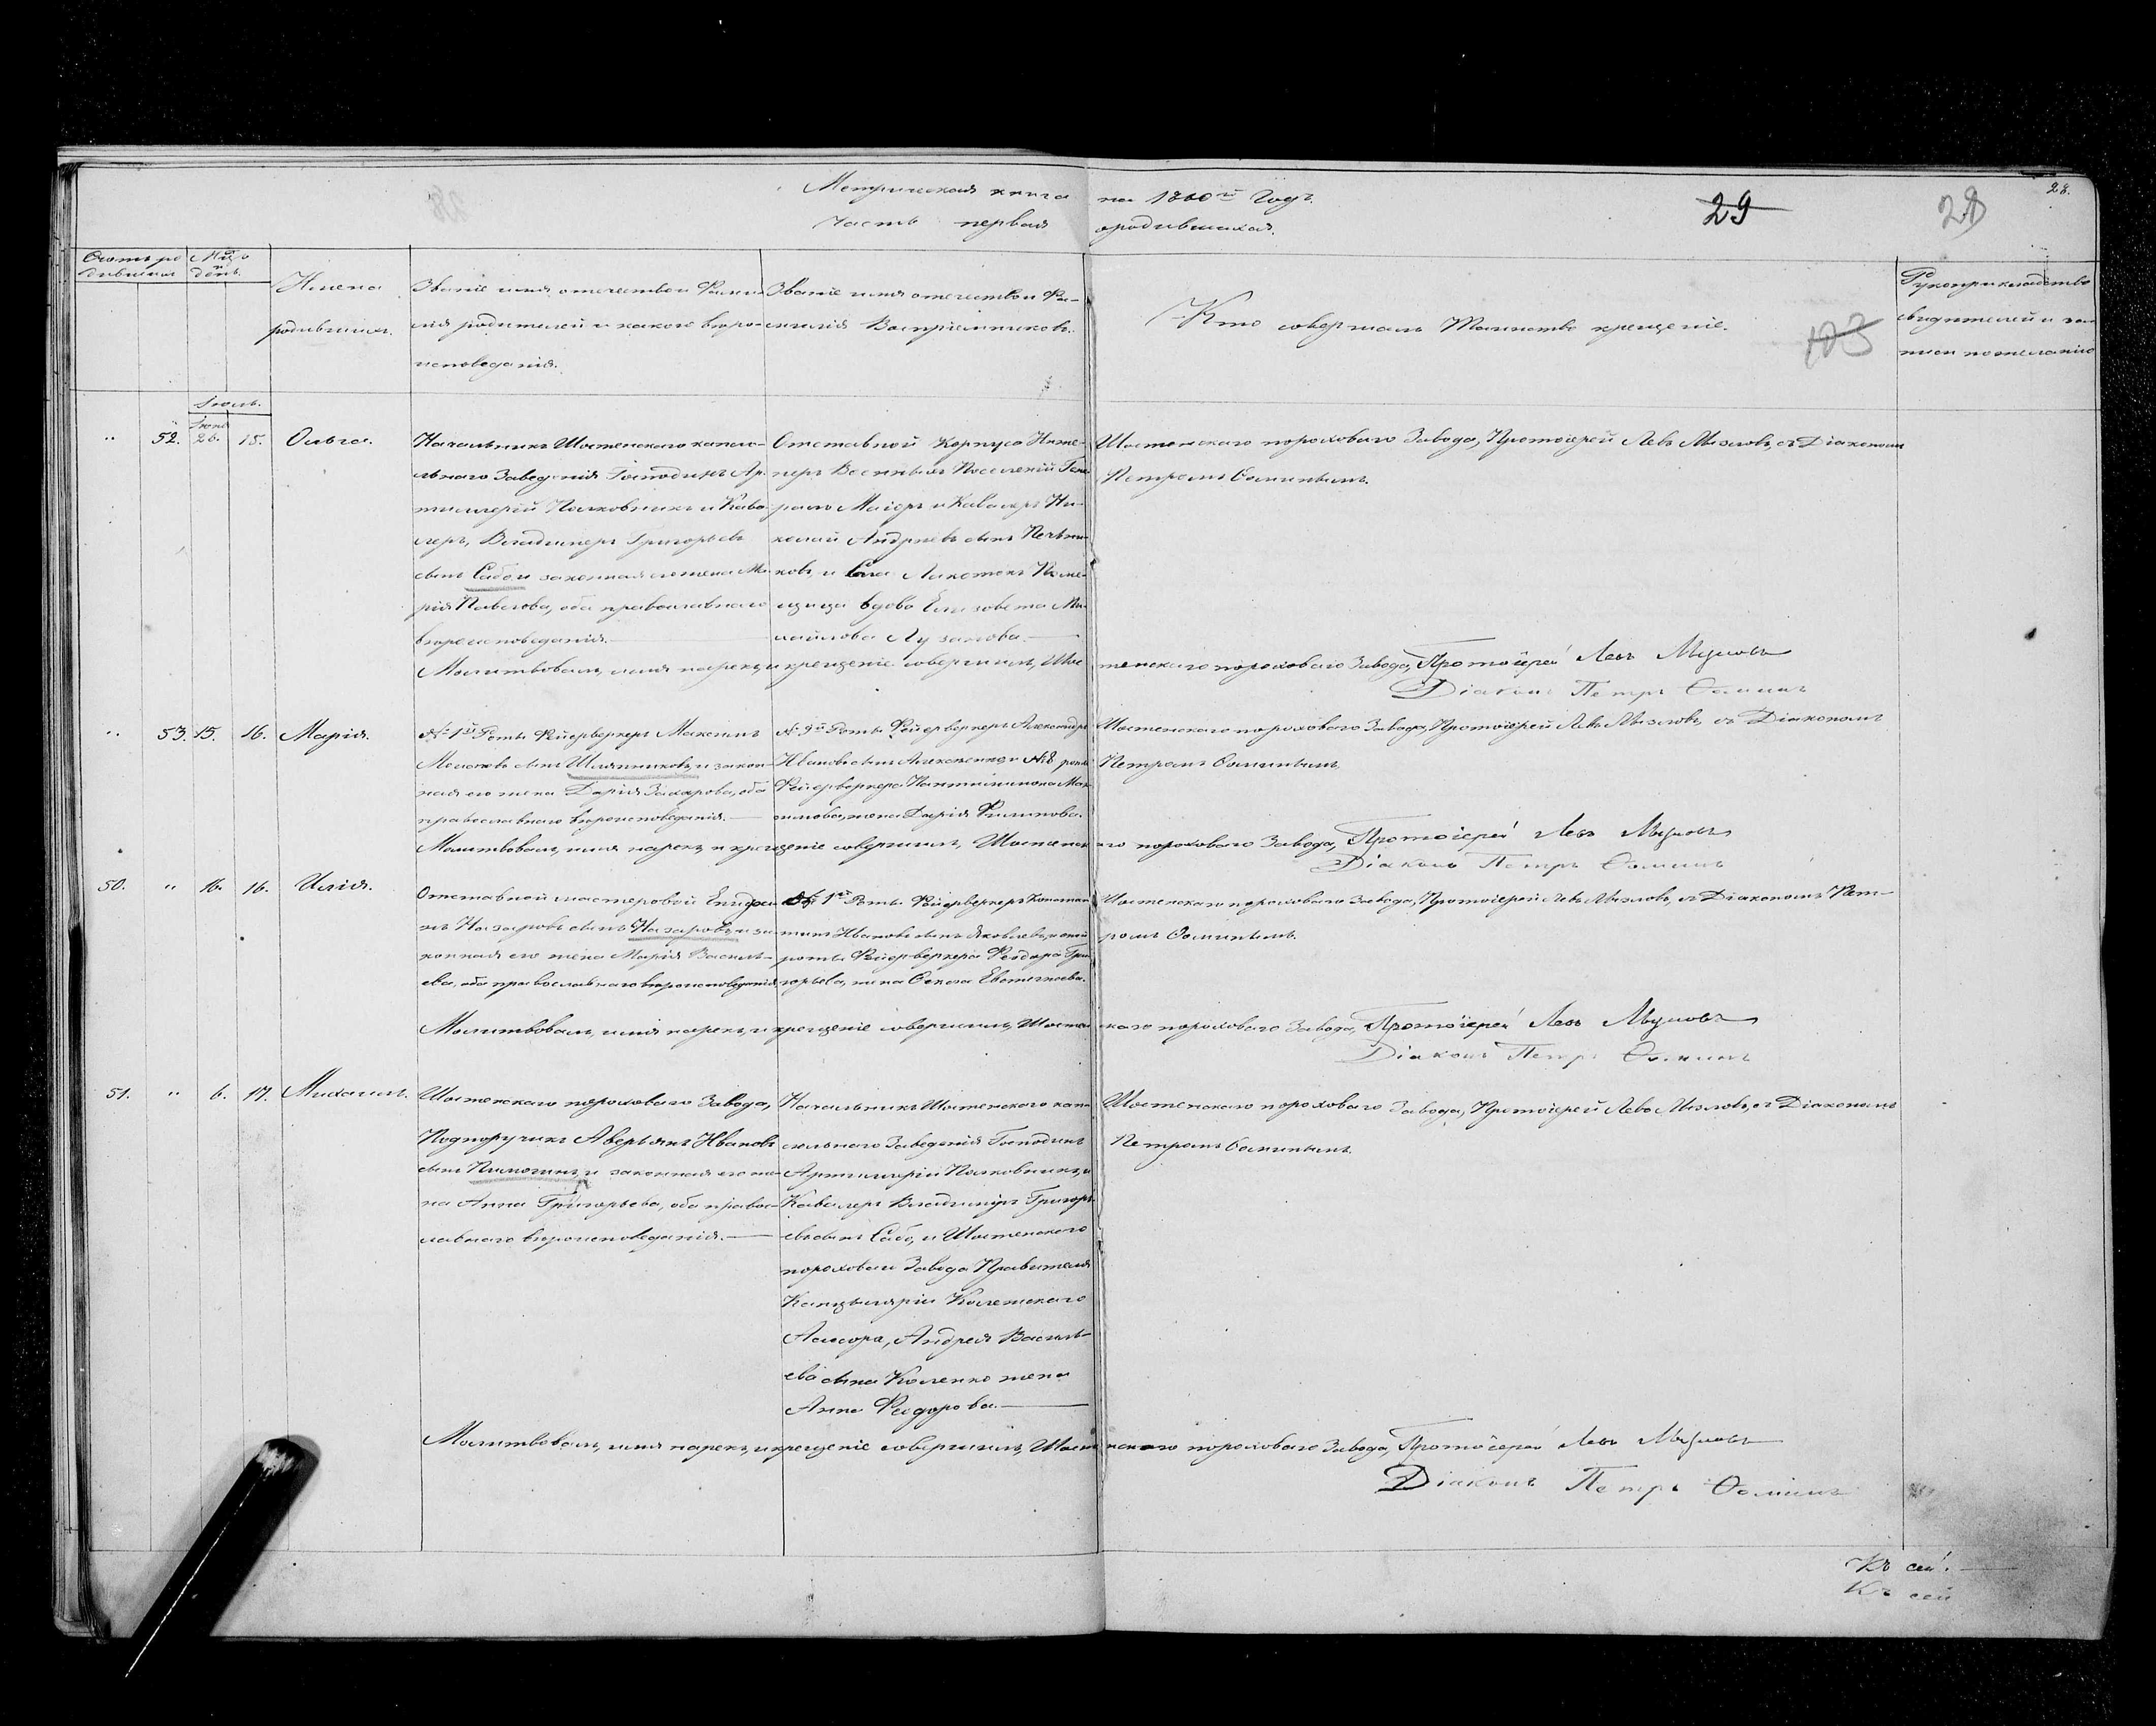 Метрическая книга на 1860й Годъ.
29
28
28.
Часть первая ородившихся.
Счетъ ро
дившихся
Мцъ
день.
Имена
родившихся.
Званіе имя отечество и Фами-
лія родителей и какого вѣро-
исповѣданія.
Званіе имя отечество и Фа-
милія Воспріемниковъ.
Кто совершалъ Таинство крещеніе.
103
Рукоприкладство
свидѣтелей и за-
писи по желанію
Іюль.
„ 52. Іюня 26. 15. Ольга.
Начальникъ Шостенскаго капсю-
льнаго Заведенія Господинъ Ар-
тиллерій Полковникъ и Кава-
леръ, Владимеръ Григорьевъ
сынъ Сабо и законная его жена Ма-
рія Павлова, оба православнаго
вѣроисповѣданія.
Отставной Корпуса Инже-
неръ Военныхъ Поселеній Гене-
ралъ Маіоръ и Кавалеръ Ни-
колай Андреевъ сынъ
и Помѣ-
щица вдова Елизовета Ми-
хайлова Лузанова.
Шостенскаго пороховаго Завода, Протоіерей Левъ Мызловъ, съ Діакономъ
Петромъ Ѳоминымъ.
Молитвовалъ, имя нарекъ, и крещеніе совершилъ, Шостенскаго пороховаго Завода, Протоіерей Левъ Мызловъ
Діаконъ Петръ Ѳоминъ
„ 53. 15. 16. Марія.
№ 1й Роты Фейерверкеръ Максимъ
сынъ Шляпниковъ, и закон-
ная его жена Дарія Захарова, оба
православнаго вѣроисповѣданія.
№ 9й Роты Фейерверкеръ Александръ
Ивановъ сынъ и №8 роты
Фейерверкера Мак-
симова, жена Дарія Филипова.
Шостенскаго пороховаго Завода, Протоіерей Левъ Мызловъ, съ Діакономъ
Петромъ Ѳоминымъ.
Молитвовалъ, имя нарекъ, и крещеніе совершилъ, Шостенскаго пороховаго Завода, Протоіерей Левъ Мызловъ
Діаконъ Петръ Ѳоминъ
50. „ 16. 16. Илія.
Отставной мастеровой
Назаровъ сынъ Назаровъ, и за-
конная его жена Марія Василь-
ева, оба православнаго вѣроисповѣданія.
№ 1й Роты Фейерверкеръ Констан-
тинъ Ивановъ сынъ Яковлевъ, и
роты Фейерверкера Феодора Гри-
горьева, жена Ѳекла Евстигнеева.
Шостенскаго пороховаго Завода, Протоіерей Левъ Мызловъ, съ Діакономъ Пет-
ромъ Ѳоминымъ.
Молитвовалъ, имя нарекъ, и крещеніе совершилъ, Шостенскаго пороховаго Завода, Протоіерей Левъ Мызловъ
Діаконъ Петръ Ѳоминъ
51. „ 6. 17. Михаилъ.
Шостенскаго пороховаго Завода,
Подпоручикъ Аверьянъ Ивановъ
сынъ Пимогинъ, и законная его же-
на Анна Григорьева, оба правос-
лавнаго вѣроисповѣданія.
Начальникъ Шостенскаго кап-
сюльнаго Заведенія Господинъ
Артиллеріи Полковникъ, и
Кавалеръ Владимиръ Григорь-
евъ сынъ Сабо, и Шостенскаго
пороховаго Завода Правителя
Канцеляріи Колежскаго
Асесора, Андрея Василь-
ева сына Коленко жена
Анна Феодорова.
Шостенскаго пороховаго Завода, Протоіерей Левъ Мызловъ, съ Діакономъ
Петромъ Ѳоминымъ.
Молитвовалъ, имя нарекъ, и крещеніе совершилъ, Шостенскаго пороховаго Завода, Протоіерей Левъ Мызловъ
Діаконъ Петръ Ѳоминъ
Къ сей.
Къ сей